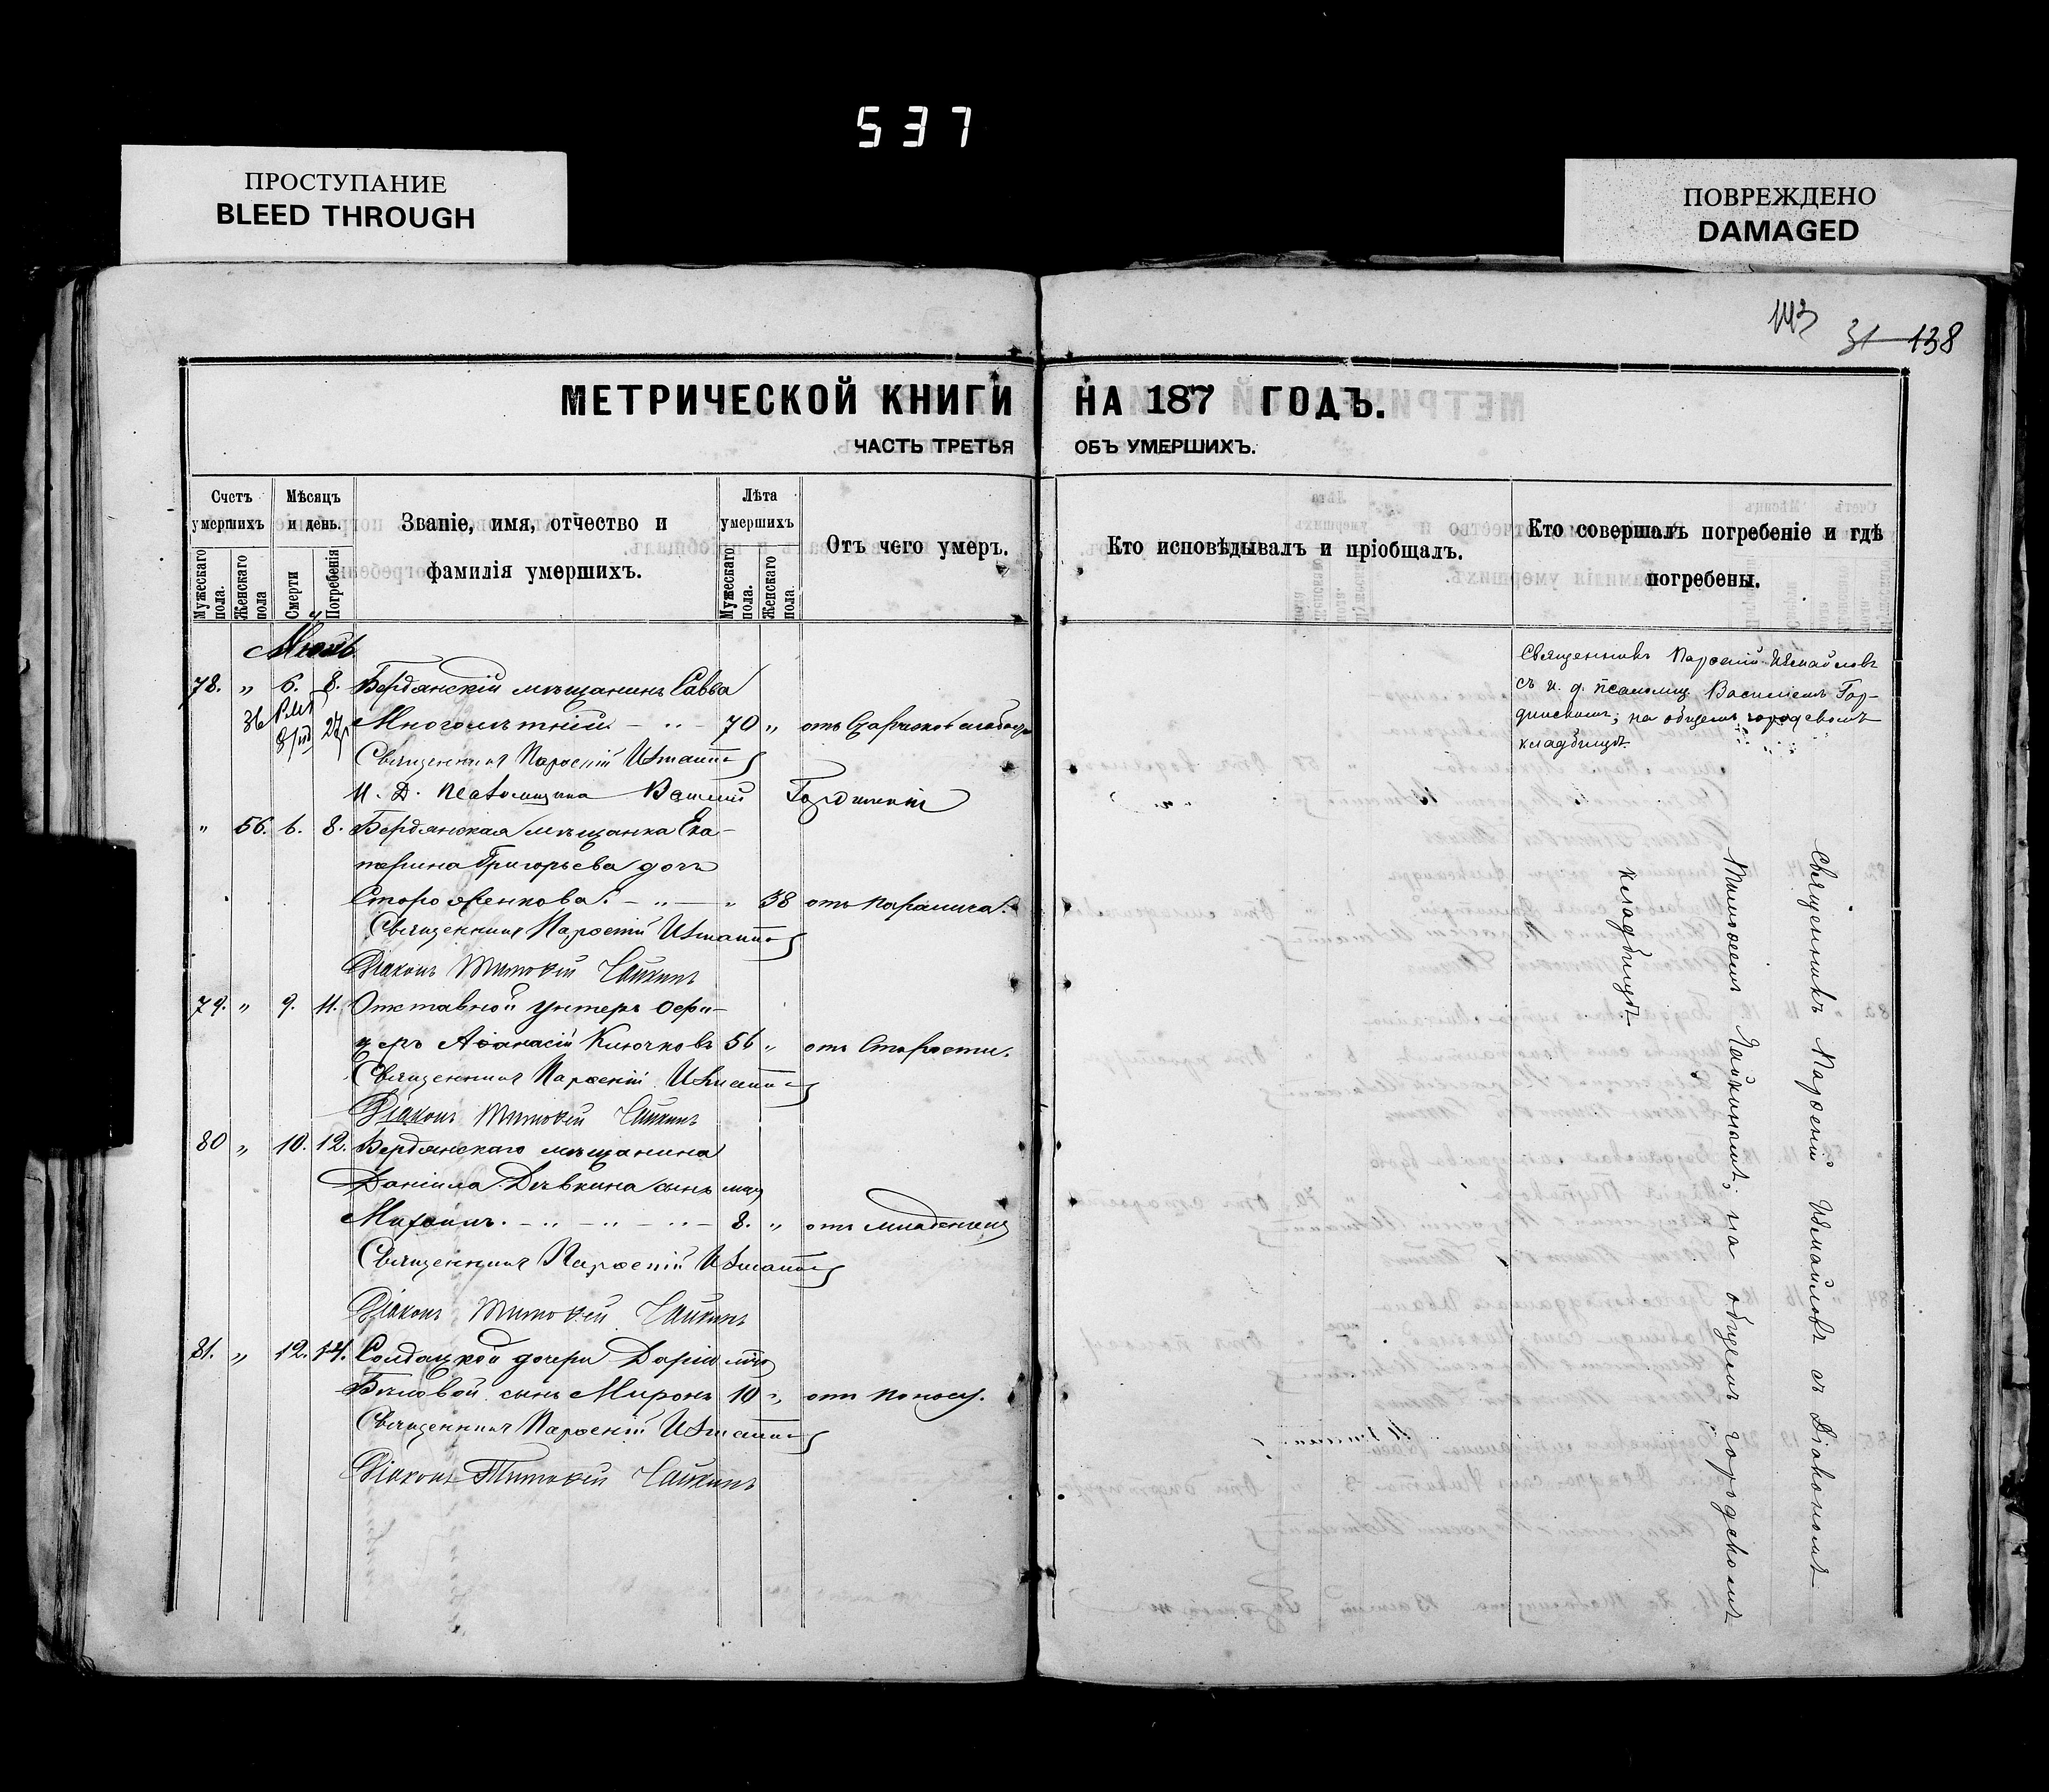 537
ПРОСТУПАНИЕ
BLEED THROUGH
ПОВРЕЖДЕНО
DAMAGED
31 138
МЕТРИЧЕСКОЙ КНИГИ НА 187 ГОДЪ.
ЧАСТЬ ТРЕТЬЯ ОБЪ УМЕРШИХЪ.
Счетъ умершихъ
Мужескаго пола.
Женскаго пола
Мѣсяцъ и день.
Смерти
Погребенія
Званіе, имя, отчество и фамилія умершихъ.
Лѣта умершихъ
Мужескаго пола.
Женскаго пола.
Отъ чего умеръ.
Кто исповѣдывалъ и пріобщалъ.
Кто совершалъ погребеніе и гдѣ погребены.
78. „ 6. 8. Бердянскій мѣщанинъ Савва
Многолѣтній 70 „ отъ
Священникъ Парѳеній Измаиловъ
И. Д. Псаломщика Василій
„ 56. 6. 8. Бердянская мѣщанка Ека-
терина Григорьева дочь
„ 38 отъ паралича.
Священникъ Парѳеній Измаиловъ
Діаконъ Тимоѳей Чайкинъ
79. „ 9. 11. Отставной унтеръ офи-
церъ Аѳанасій Ключковъ 56 „ отъ старости.
Священникъ Парѳеній Измаиловъ
Діаконъ Тимоѳей Чайкинъ
80 „ 10. 12. Бердянскаго мѣщанина
Даніила Дѣвкина сынъ
Михаилъ. 8. „ отъ
Священникъ Парѳеній Измаиловъ
Діаконъ Тимоѳей Чайкинъ
81. „ 12. 14. Солдатской дочери Даріи
Бѣловой сынъ Миронъ 10 „ отъ поносу.
Священникъ Парѳеній Измаиловъ
Діаконъ Тимоѳей Чайкинъ
Священникъ Парѳеній Измаиловъ
съ и. д. псаломщ. Василіемъ Гор-
; на общемъ городскомъ
кладбищѣ.
Священникъ Парѳеній Измаиловъ съ Діакономъ
Тимоѳеемъ Чайкинымъ; на общемъ городскомъ
кладбищѣ.